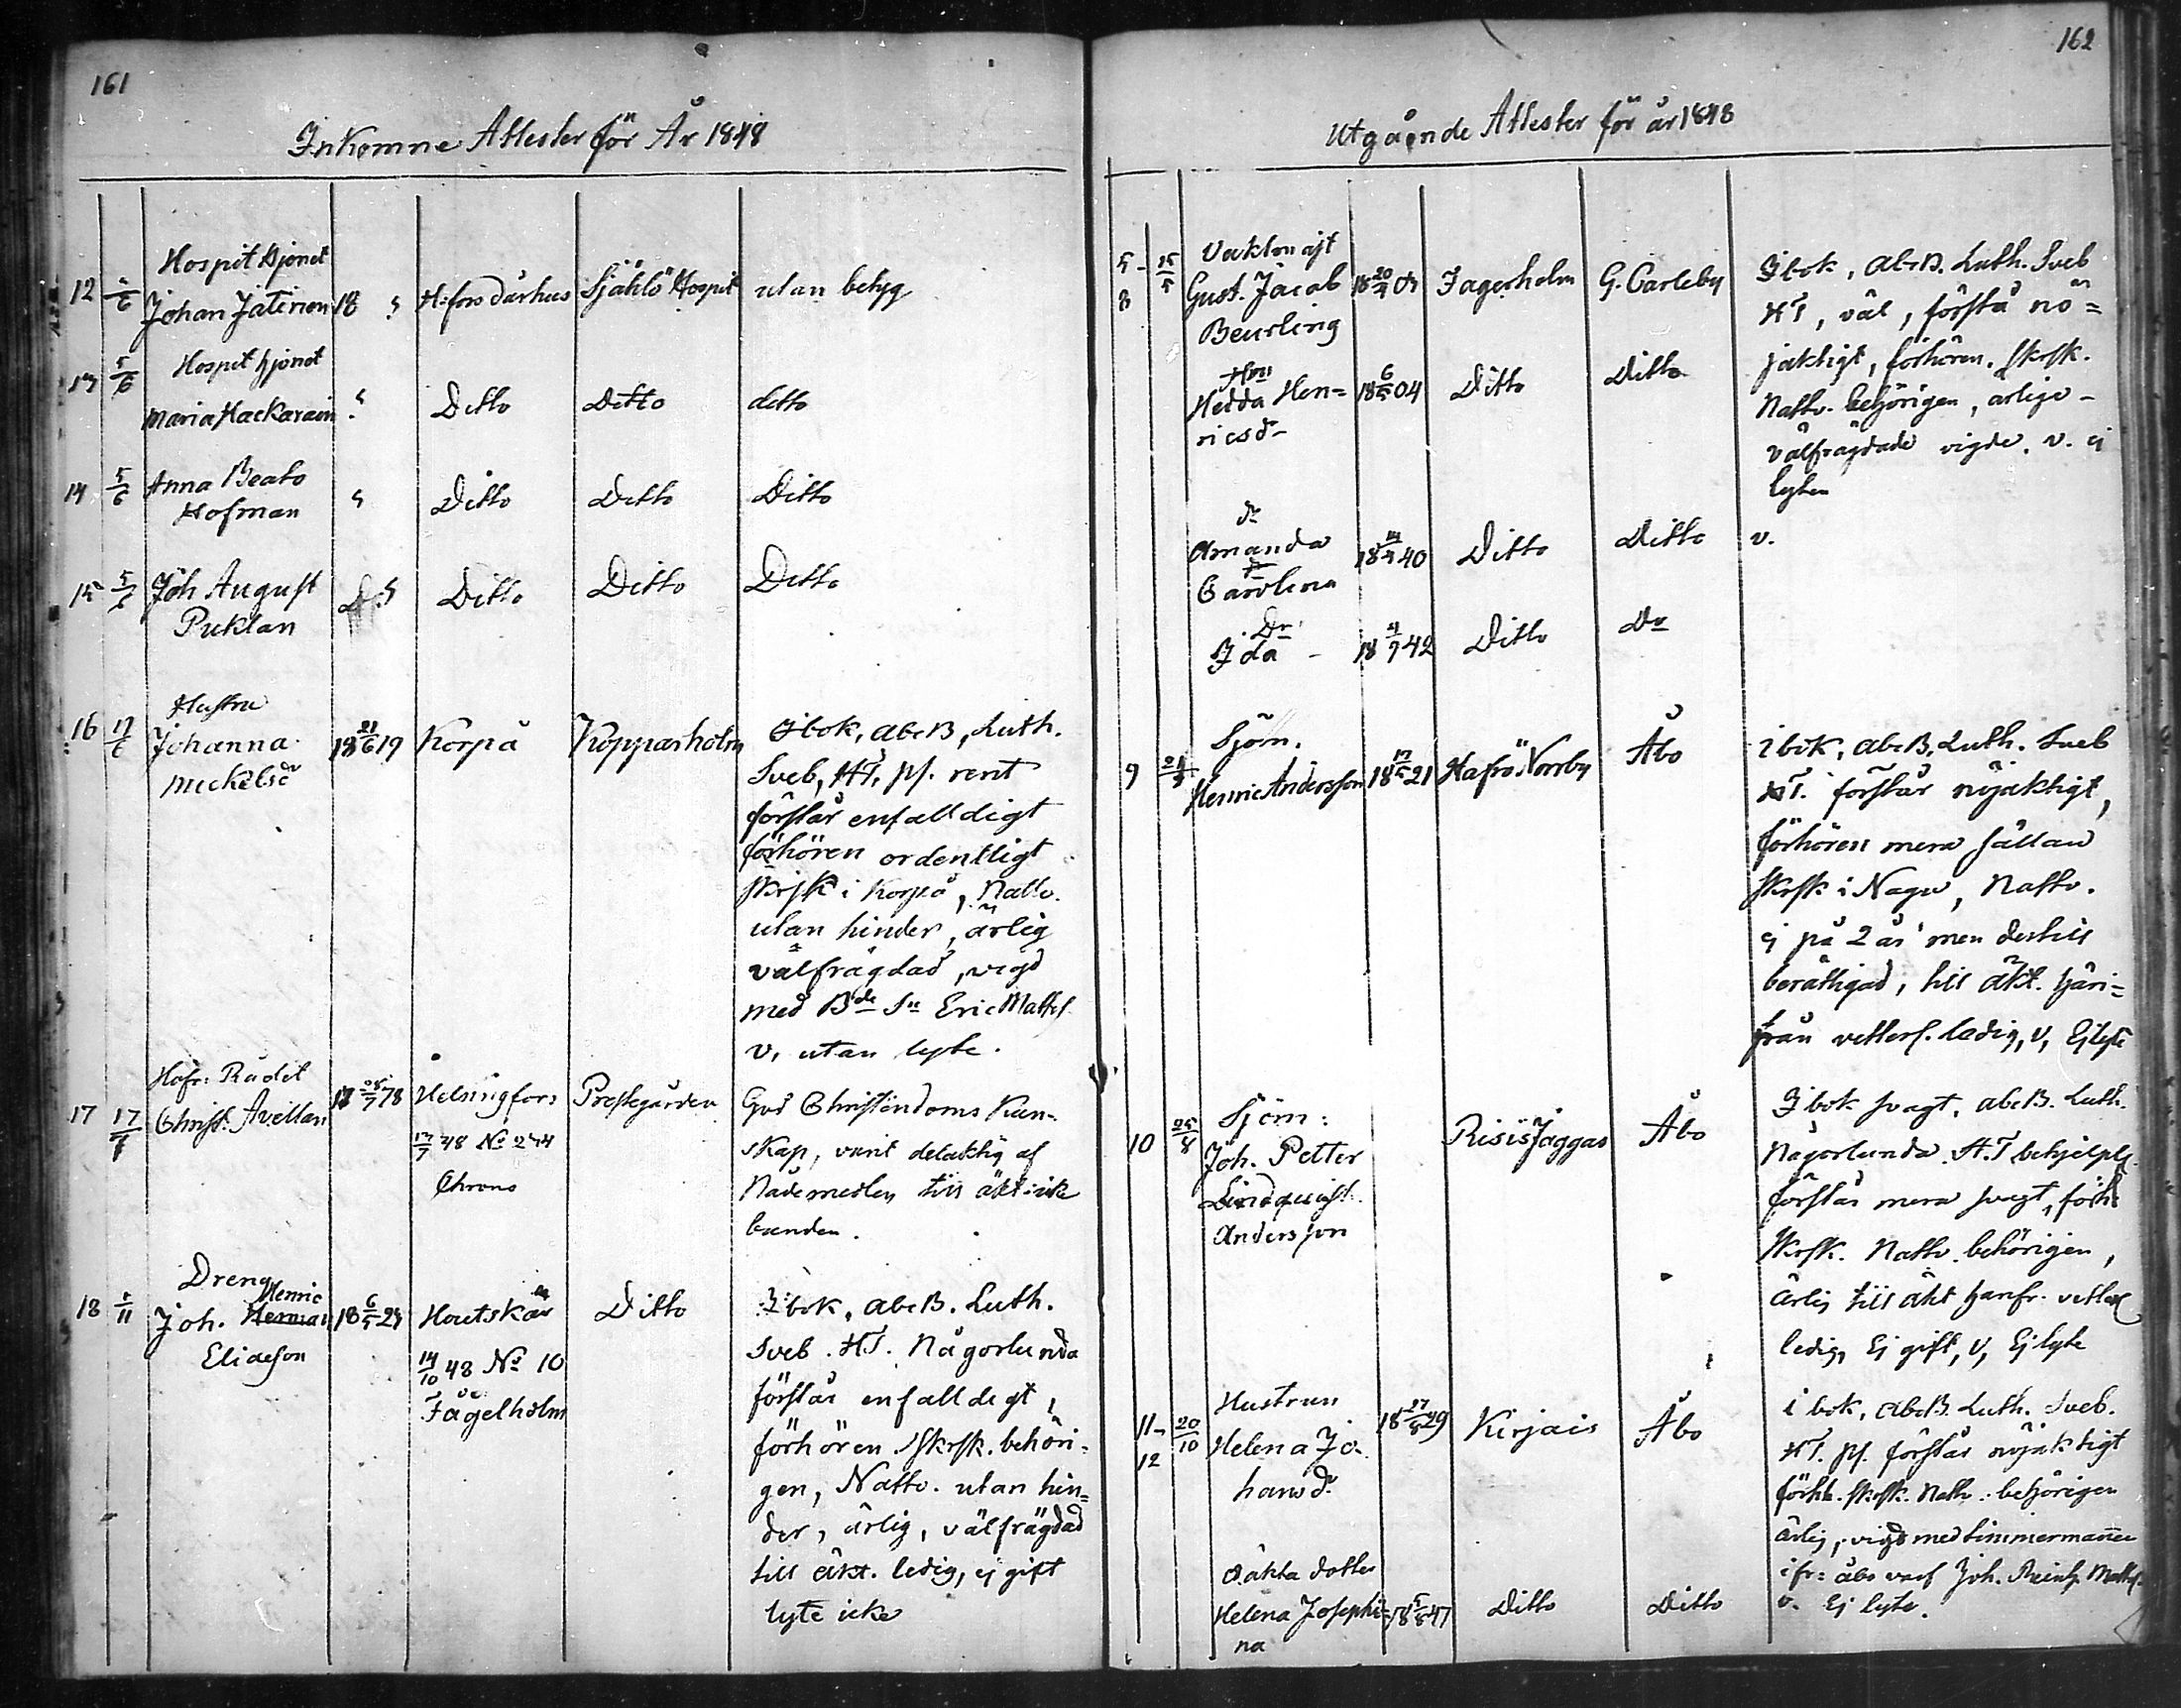 161
Inkomne Attester för År 1848
12
Hospit hjonet
Johan Jäterinen 18 H:fors dårhus Själö Hospit utan betyg
13 5/6
Hospit hjonet
Maria Hackarain Ditto Ditto ditto
14 5/6 Anna Beata
Hofman
Ditto Ditto Ditto
15 5/6 Joh August
Puklan
Ditto Ditto Ditto
16 17/6
Hustru
Johanna
Mickelsdr
18 21/6 19 Korpå Kopparholm
I bok, abcB, Luth.
Sveb, HT, ps. rent
förstår enfalldigt
förhören ordentligt
skrsk i Korpå, Nattv.
utan hinder, ärlig
välfrägdad, vigd
med Bde Sn Eric Matts
v, utan lyte.
17 17/7
Hofr: Rådet
Christ. Avellan
17 78 Helsingfors
48 No 244
Chrons
Prestegården
God Christendoms Kun-
skap, varit delaktig af
Nådemedlen till äkt: icke
bunden.
18 /11
Dreng
Henric
Joh. Herman
Eliaeson
18 6/5 24 Houtskär
14/10 48 No 10
Fågelholm
Ditto
I bok, abcB. Luth.
Sveb. HT. Någorlunda
förstår enfalldigt,
förhören, skrsk. behöri-
gen, Nattv. utan hin=
der, ärlig, välfrägdad
till äkt. ledig, ej gift
lyte icke
162
Utgående Attester för år 1848
5-
8
Vaktmäst
Gust. Jacob
Beurling
Jagerholm G. Carleby
Hru
Hedda Hen=
ricsd-
18 6/5 04 Ditto Ditto
I bok, abcB. Luth. Sveb
HT, väl, förstå nö=
jaktigt, förhören. skrsk.
Nattv. behörigen, ärliga -
välfrägdade vigde. v. ej
lyten
dr
Amanda
Carolina
40 Ditto Ditto v.
Dr
Ida -
42 Ditto Do
9
Sjöm.
Henric Andersson
21 Hafrö Norrby Åbo
i bok, abcB, Luth. Sveb
HT. förstår nöjaktigt,
förhören mera sällan
skrsk i Nagu, Nattv.
ej på 2 år men dertill
berättigad, till äkt. häri=
från vetterl. ledig, v, Ej lyte
10 25/8
Sjöm:
Joh. Petter
Lindquist.
Andersson
Risis Jäggas Åbo
I bok svagt, abcB. Luth.
Någorlunda. H.T behjelpl.
förstår mera svagt, förh:
skrsk. Nattv. behörigen,
ärlig till äkt härifr. vetterl
ledig, Ej gift, v, Ej lyte
11-
12
20/10
Hustrun
Helena Jo-
hansd.
29 Kirjais Åbo
i bok, abcB. Luth. Sveb.
HT. ps. förstår nöjaktigt
förhh. skrsk. Nattv. behörigen
ärlig, vigd med timmermannen
ifr: Åbo varf Joh. Reinh. Matts.
v. Ej lyte.
O.äkta dotter
Helena Josephi=
na
47 Ditto Ditto